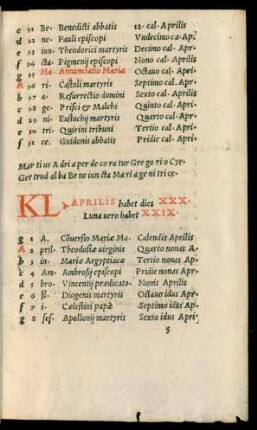 c 21 Be- Benedicti abbatis 12. cal- Aprilis
d 22 ne- Pauli episcopi Vndecimo ca- Apr.
e 23 iun- Theodorici martyris Decimo cal- Apri.
f 24 cta- Pigmenij episcopi Nono cal- Aprilis
g 25 Ma- Annunciatio Mariæ Octauo cal- Apri.
A 26 ri- Castoli martyris Septimo cal- Apri.
b 27 a- Resurrectio domini Sexto cal- Aprilis
c 28 ge- Prisci & Malchi Quinto cal- Apri.
d 29 ni- Eustachij martyris Quarto cal- Apri.
e 30 tri- Quirini tribuni Tertio cal- Apri-
f 31 ce. Guidonis abbatis Pridie cal- Apri.
Mar ti us A dri a per de co ra tur Gre go ri o Cyr-
Ger trud al ba Be ne iun cta Mari a ge ni tri ce-
KL APRILIS habet dies XXX.
Luna uero habet XXIX.
g 1 A- Cōuersio Mariæ Ma- Calendis Aprilis
A 2 pril- Theodosiæ uirginis Quarto nonas A-
b 3 in- Mariæ Aegyptiacæ Tertio nonas Ap-
c 4 Am- Ambrosij episcopi Pridie nonas Apr-
d 5 bro- Vincentij prædicato- Nonis Aprilis
e 6 si- Diogenis martyris Octauo idus Apr-
f 7 i- Cælestini papæ Septimo idus Ap-
g 8 fes- Apollonij martyris Sexto idus Apri-
5